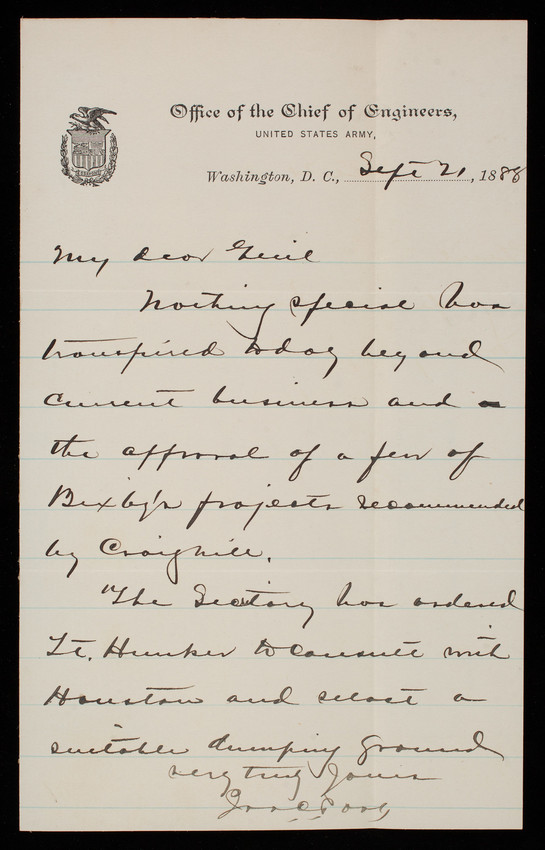 Office of the Chief of Engineers,
UNITED STATES ARMY,
Washington, D. C., Sept 21, 1888
My dear Genl
Nothing special has
transpired today beyond
current business and
the approval of a few of
Bixby's projects recommended
by Craighill.
The Secretary has ordered
Lt. Hunker to consult with
Houston and select a
suitable dumping ground
very truly yours